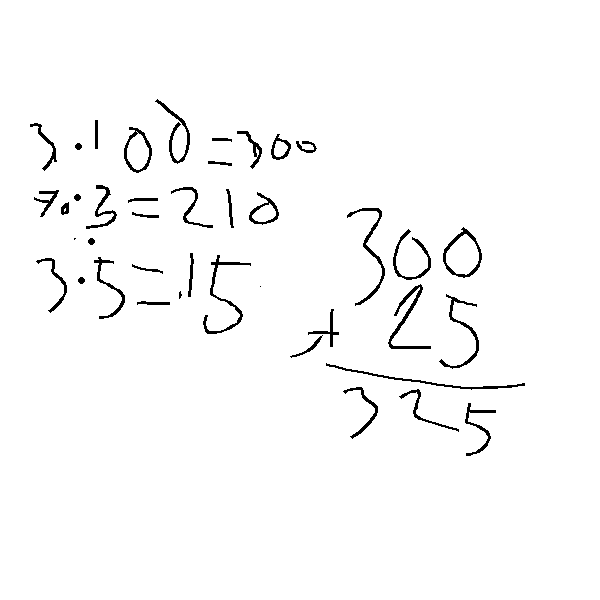 3·100=300
70·3=210
3·5=15
300
+ 25
325